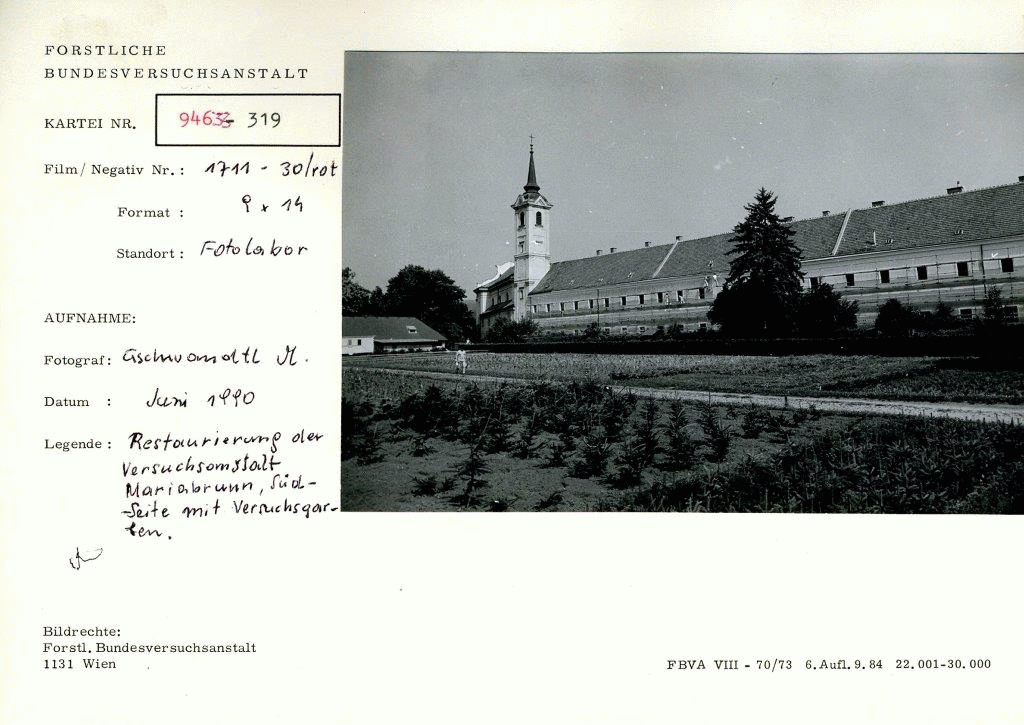 FORSTLICHE
BUNDESVERSUCHSANSTALT
KARTEI NR. 94633- 319
Film/ Negativ Nr. : 1711 - 30/rot
Format : 9 x 14
Standort : Fotolabor
AUFNAHME:
Fotograf : Gschwandtl M.
Datum : Juni 1990
Legende : Restaurierung der
Versuchsanstalt
Mariabrunn, Süd-
-Seite mit Versuchsgar-
ten.
Bildrechte:
Forstl. Bundesversuchsanstalt
1131 Wien
FBVA VIII - 70/73 6. Aufl. 9. 84 22. 001-30. 000